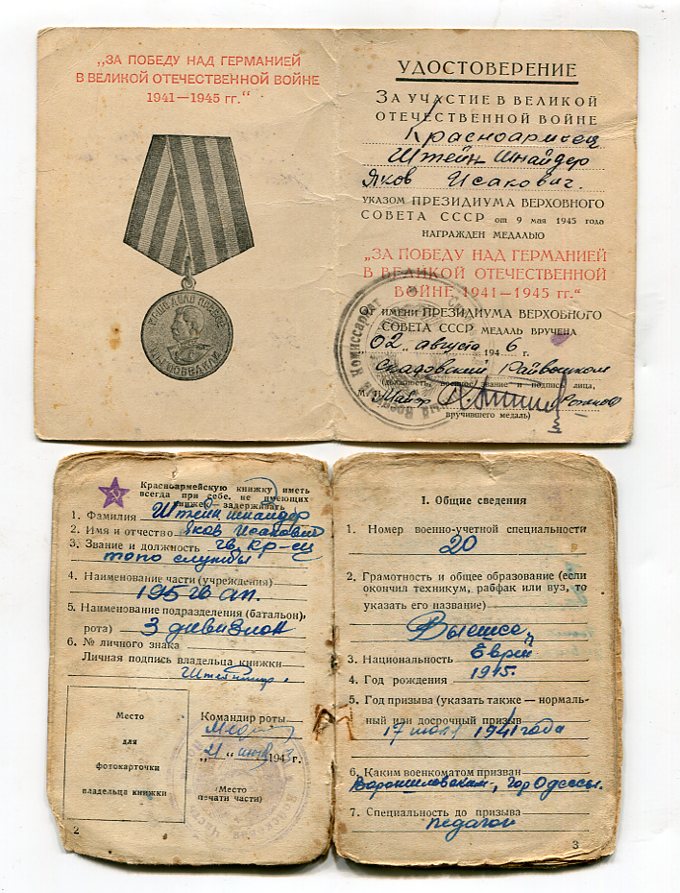 „ЗА ПОБЕДУ НАД ГЕРМАНИЕЙ
В ВЕЛИКОЙ ОТЕЧЕСТВЕННОЙ ВОЙНЕ
1941—1945 гг.“
НАШЕ ДЕЛО ПРАВОЕ
МЫ ПОБЕДИЛИ
УДОСТОВЕРЕНИЕ
ЗА УЧАСТИЕ В ВЕЛИКОЙ
ОТЕЧЕСТВЕННОЙ ВОЙНЕ
Красноармеец
Штейншнайдер
Яков Исакович.
УКАЗОМ ПРЕЗИДИУМА ВЕРХОВНОГО
СОВЕТА СССР от 9 мая 1945 года
НАГРАЖДЕН МЕДАЛЬЮ
„ЗА ПОБЕДУ НАД ГЕРМАНИЕЙ
В ВЕЛИКОЙ ОТЕЧЕСТВЕННОЙ
ВОЙНЕ 1941—1945 гг.“
От имени ПРЕЗИДИУМА ВЕРХОВНОГО
СОВЕТА СССР МЕДАЛЬ ВРУЧЕНА
02 августа 1946 г.
Скадовский Райвоенком
(должность, военное звание и подпись лица,
М. П. Майор
вручившего медаль)
Красноармейскую книжку иметь
всегда при себе, не имеющих
книжек — задерживать
1. Фамилия Штейншнайдер
2. Имя и отчество Яков Исакович
3. Звание и должность гв. кр-ец
топо службы
4. Наименование части (учреждения)
195 гв ап.
5. Наименование подразделения (батальон,
рота) 3 дивизион
6. № личного знака
Личная подпись владельца книжки
Место
для
фотокарточки
владельца книжки
Командир роты
„21“ 1943 г.
(Место
печати части)
2
I. Общие сведения
1. Номер военно-учетной специальности
20
2. Грамотность и общее образование (если
окончил техникум, рабфак или вуз, то
указать его название)
Высшее
3. Национальность Еврей
4. Год рождения 1915.
5. Год призыва (указать также — нормаль-
ный или досрочный призыв
17 июля 1941 года
6. Каким военкоматом призван
Ворошиловским, гор Одессы.
7. Специальность до призыва
педагог
3